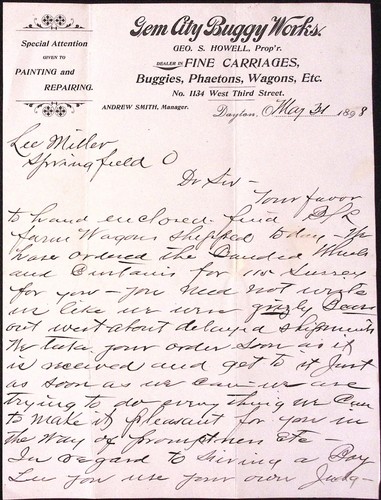 Gem City Buggy Works.
GEO. S. HOWELL, Prop'r.
DEALER IN FINE CARRIAGES,
Buggies, Phaetons, Wagons, Etc.
No. 1134 West Third Street.
Special Attention
GIVEN TO
PAINTING and
REPAIRING.
ANDREW SMITH, Manager.
Dayton, O. May 31 1898
Lee Miller
Springfield O
Dr Sir - Your favor
to hand enclosed find B/L
farm Wagons shipped today - We
have ordered the Banded Wheels
and Curtains for Surrey
for you - you need not write
us like we were grizzly Bears
out west about delayed shipments
We take your order soon as it
is received and get to it Just
as soon as we can - we are
trying to do every thing we can
to make it pleasant for you in
the way of promptness etc -
In regard to hiring a Boy
Lee you use your own Judg-